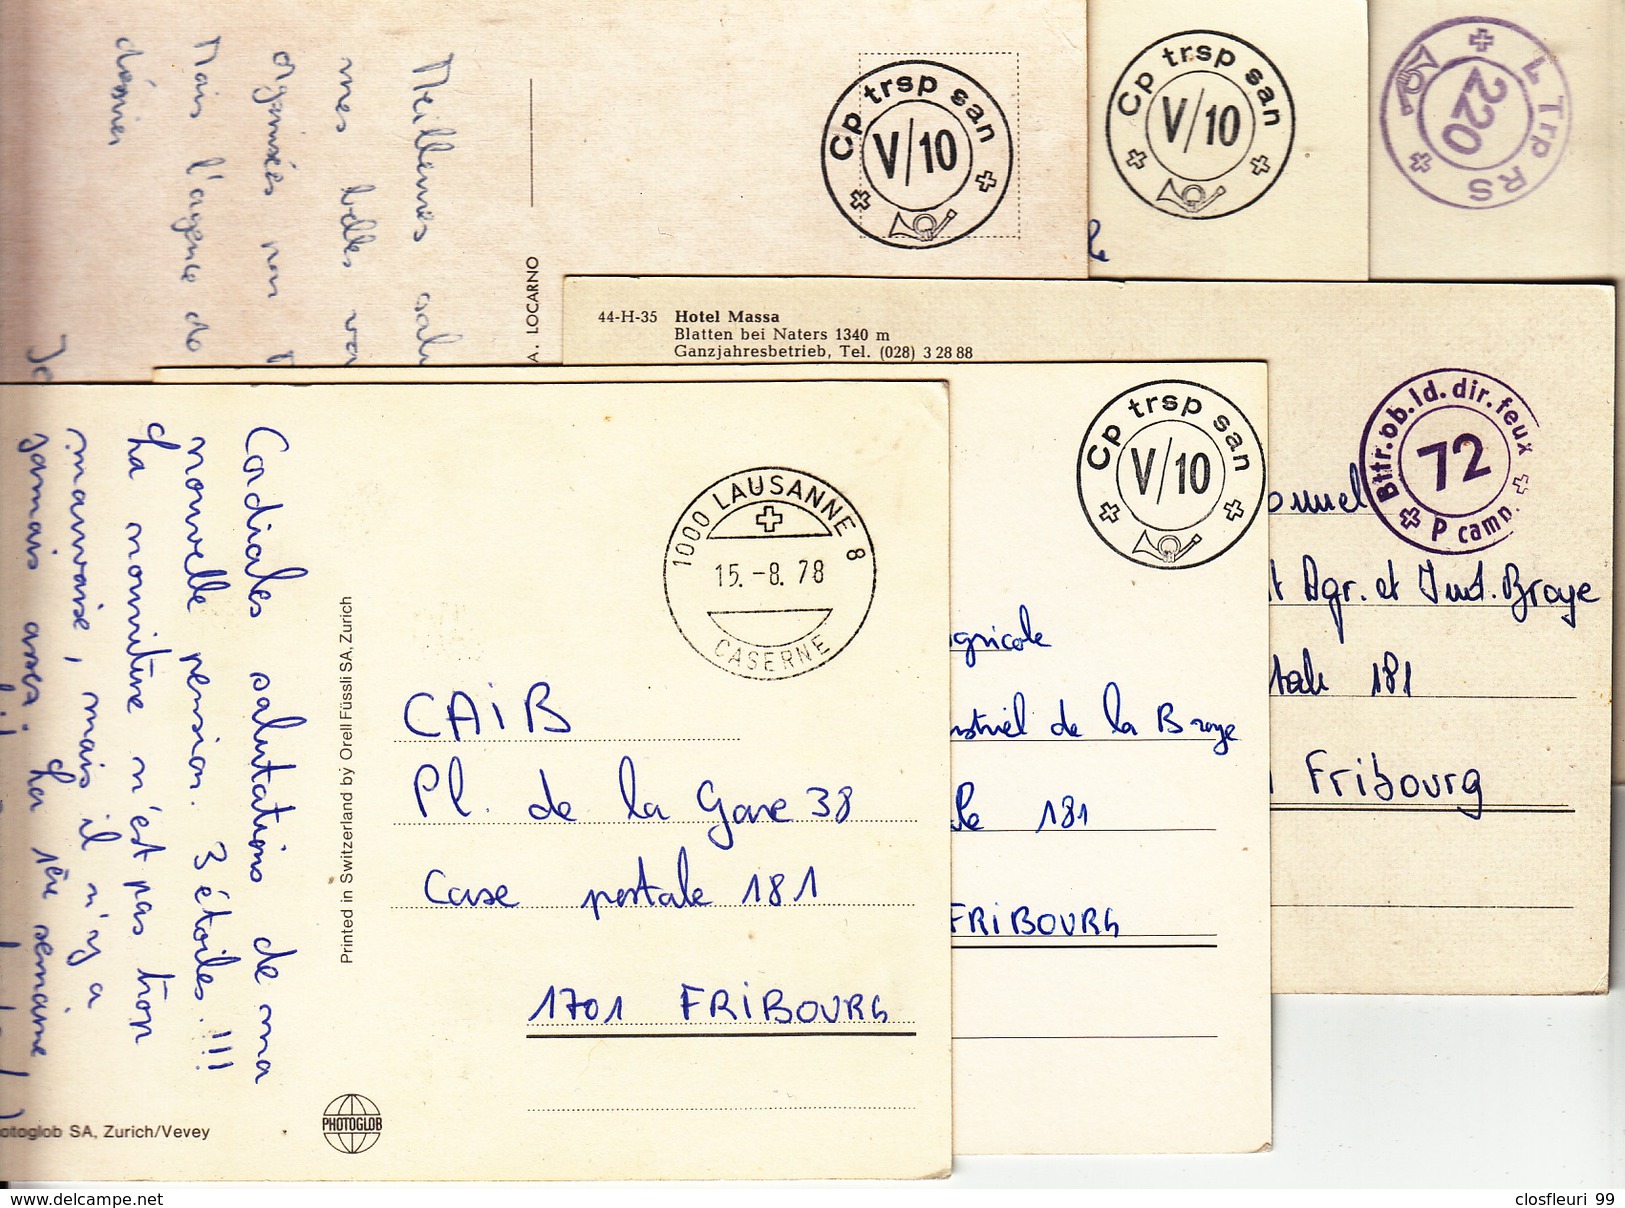 Meilleures
mes belles
organisés
Mais l'agence do
A. LOCARNO
Cp trsp san
V/10
Cp trsp san
V/10
L Trp RS
220
44-H-35 Hotel Massa
Blatten bei Naters 1340 m
Ganzjahresbetrieb, Tel. (028) 3 28 88
Bttr. ob. ld. dir. feux
72
P camp.
Agr. et Ind. Broye
181
Fribourg
Cp trsp san
V/10
agricole
de la Broye
181
FRIBOURG
Cordiales salutations de ma
nouvelle pension. 3 étoiles.!!!
La nourriture n'est pas trop
mauvaise, mais il n'y a
jamais assez. La 1ère semaine
Printed in Switzerland by Orell Füssli SA, Zurich
1000 LAUSANNE 8
15.-8.78
CASERNE
CAIB
Pl. de la Gare 38
Case postale 181
1701 FRIBOURG
PHOTOGLOB
otoglob SA, Zurich/Vevey
www.delcampe.net
closfleuri 99